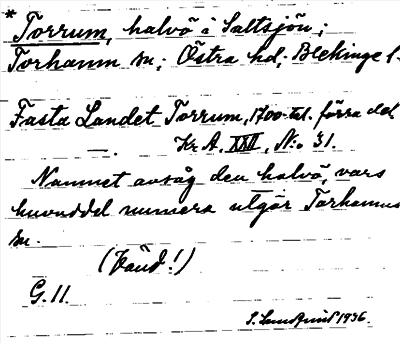 * Torrum, halvö i Saltsjön;
Torhamn sn; Östra hd; Blekinge l.
Fasta Landet Torrum, 1700-tal. förra del.
Kr. A. XXII, No 31.
Namnet avsåg den halvö, vars
huvuddel numera utgör Torhamns
sn.
(Känd!)
G. 11.
1936